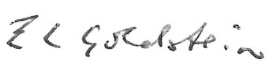 E L Goldstein